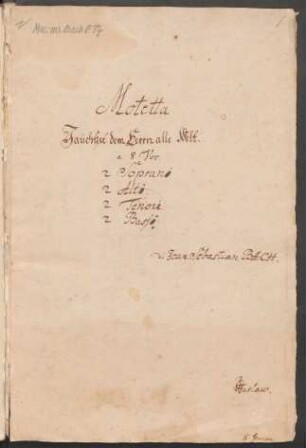 Mus. ms. Bach P 
Motetta
Jauchzet dem Herrn alle Welt.
a 8 Voc.
2 Soprani
2 Alti
2 Tenori
2 Bassi
di Joan Sebastian BACH.